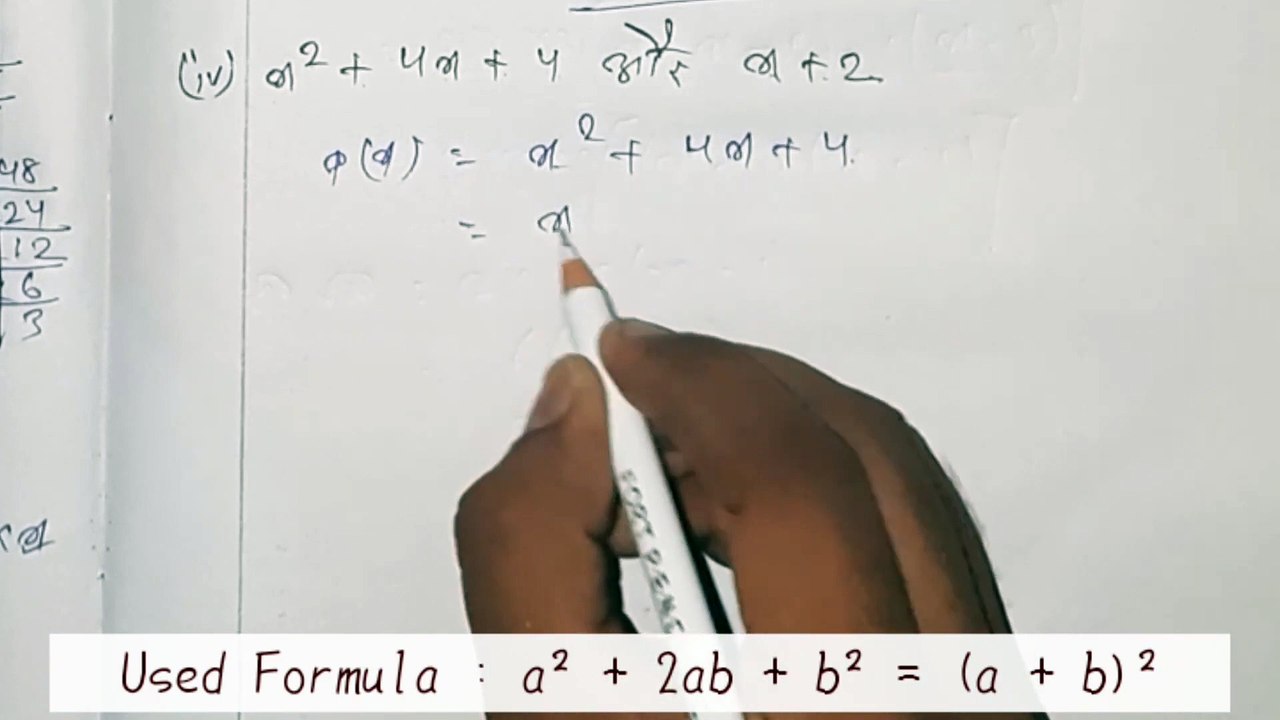 (iv) x² + 4x + 4 और x + 2
p(x) = x² + 4x + 4.
= x
48
24
12
6
3
Used Formula : a² + 2ab + b² = (a + b)²